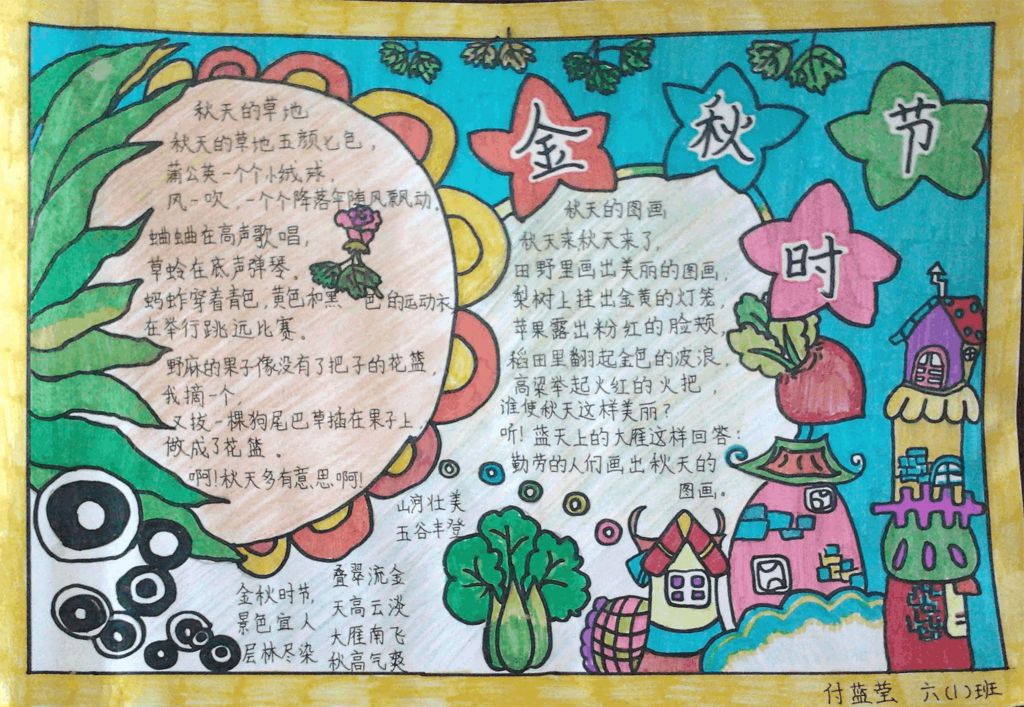 金秋时节
秋天的草地
秋天的草地五颜七色，
蒲公英一个个小绒球，
风一吹，一个个降落伞随风飘动。
蛐蛐在高声歌唱，
草蛉在底声弹琴。
蚂蚱穿着青色，黄色和黑色的运动衣
在举行跳远比赛。
野麻的果子像没有了把子的花篮，
我摘一个，
又拔一棵狗尾巴草插在果子上，
做成了花篮。
啊！秋天多有意思啊！
秋天的图画
秋天来秋天来了，
田野里画出美丽的图画，
梨树上挂出金黄的灯笼，
苹果露出粉红的脸颊，
稻田里翻起金色的波浪，
高梁举起火红的火把，
谁使秋天这样美丽？
听！蓝天上的大雁这样回答：
勤劳的人们画出秋天的
图画。
山河壮美
五谷丰登
叠翠流金
天高云淡
大雁南飞
秋高气爽
金秋时节，
景色宜人
层林尽染
付蓝莹 六(1)班